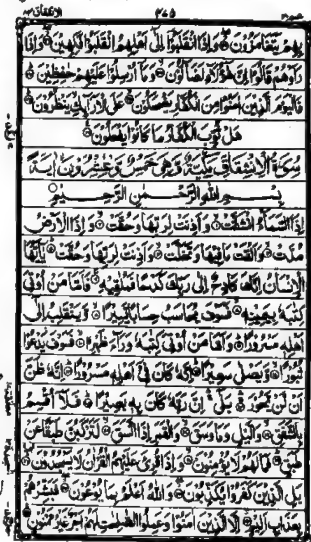 عم ٣٠ ٧٤٥ الانشقاق ٨٤
بِهِمْ يَتَغَامَزُونَ وَإِذَا انْقَلَبُوا إِلَى أَهْلِهِمُ انْقَلَبُوا فَكِهِينَ وَإِذَا
رَأَوْهُمْ قَالُوا إِنَّ هَؤُلَاءِ لَضَالُّونَ وَمَا أُرْسِلُوا عَلَيْهِمْ حَافِظِينَ
فَالْيَوْمَ الَّذِينَ آمَنُوا مِنَ الْكُفَّارِ يَضْحَكُونَ عَلَى الْأَرَائِكِ يَنْظُرُونَ
هَلْ ثُوِّبَ الْكُفَّارُ مَا كَانُوا يَفْعَلُونَ
سُورَةُ الْاِنْشِقَاقِ مَكِّيَّةٌ وَهِيَ خَمْسٌ وَعِشْرُونَ آيَةً
بِسْمِ اللَّهِ الرَّحْمَٰنِ الرَّحِيمِ
إِذَا السَّمَاءُ انْشَقَّتْ وَأَذِنَتْ لِرَبِّهَا وَحُقَّتْ وَإِذَا الْأَرْضُ
مُدَّتْ وَأَلْقَتْ مَا فِيهَا وَتَخَلَّتْ وَأَذِنَتْ لِرَبِّهَا وَحُقَّتْ يَا أَيُّهَا
الْإِنْسَانُ إِنَّكَ كَادِحٌ إِلَى رَبِّكَ كَدْحًا فَمُلَاقِيهِ فَأَمَّا مَنْ أُوتِيَ
كِتَابَهُ بِيَمِينِهِ فَسَوْفَ يُحَاسَبُ حِسَابًا يَسِيرًا وَيَنْقَلِبُ إِلَى
أَهْلِهِ مَسْرُورًا وَأَمَّا مَنْ أُوتِيَ كِتَابَهُ وَرَاءَ ظَهْرِهِ فَسَوْفَ يَدْعُوا
ثُبُورًا وَيَصْلَى سَعِيرًا إِنَّهُ كَانَ فِي أَهْلِهِ مَسْرُورًا إِنَّهُ ظَنَّ
أَنْ لَنْ يَحُورَ بَلَى إِنَّ رَبَّهُ كَانَ بِهِ بَصِيرًا فَلَا أُقْسِمُ
بِالشَّفَقِ وَاللَّيْلِ وَمَا وَسَقَ وَالْقَمَرِ إِذَا اتَّسَقَ لَتَرْكَبُنَّ طَبَقًا عَنْ
طَبَقٍ فَمَا لَهُمْ لَا يُؤْمِنُونَ وَإِذَا قُرِئَ عَلَيْهِمُ الْقُرْآنُ لَا يَسْجُدُونَ
بَلِ الَّذِينَ كَفَرُوا يُكَذِّبُونَ وَاللَّهُ أَعْلَمُ بِمَا يُوعُونَ فَبَشِّرْهُمْ
بِعَذَابٍ أَلِيمٍ إِلَّا الَّذِينَ آمَنُوا وَعَمِلُوا الصَّالِحَاتِ لَهُمْ أَجْرٌ غَيْرُ مَمْنُونٍ